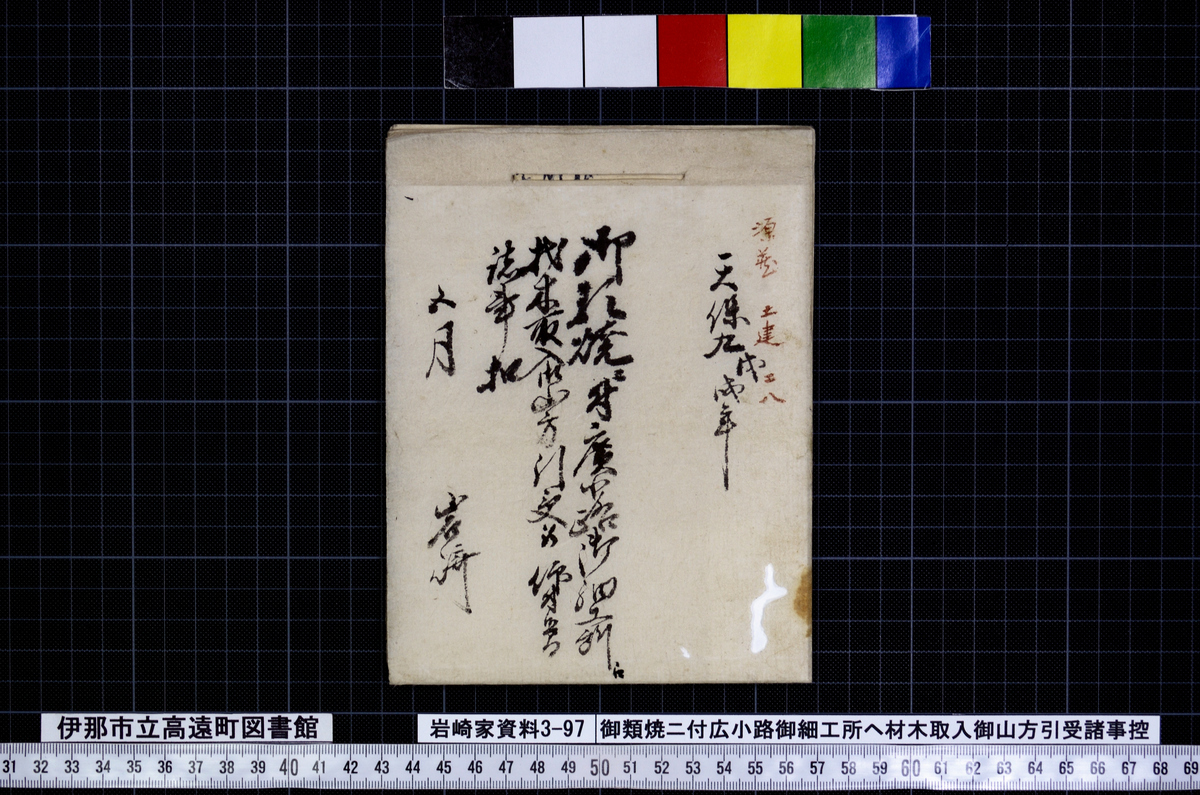 源蔵 土建 工八
天保九戊戌年
御類焼ニ付廣小路御細工所江
材木取入御山方引受
諸事扣
五月
岩崎
伊那市立高遠町図書館
岩崎家資料3-97 御類焼ニ付広小路御細工所ヘ材木取入御山方引受諸事控
31 32 33 34 35 36 37 38 39 40 41 42 43 44 45 46 47 48 49 50 51 52 53 54 55 56 57 58 59 60 61 62 63 64 65 66 67 68 69